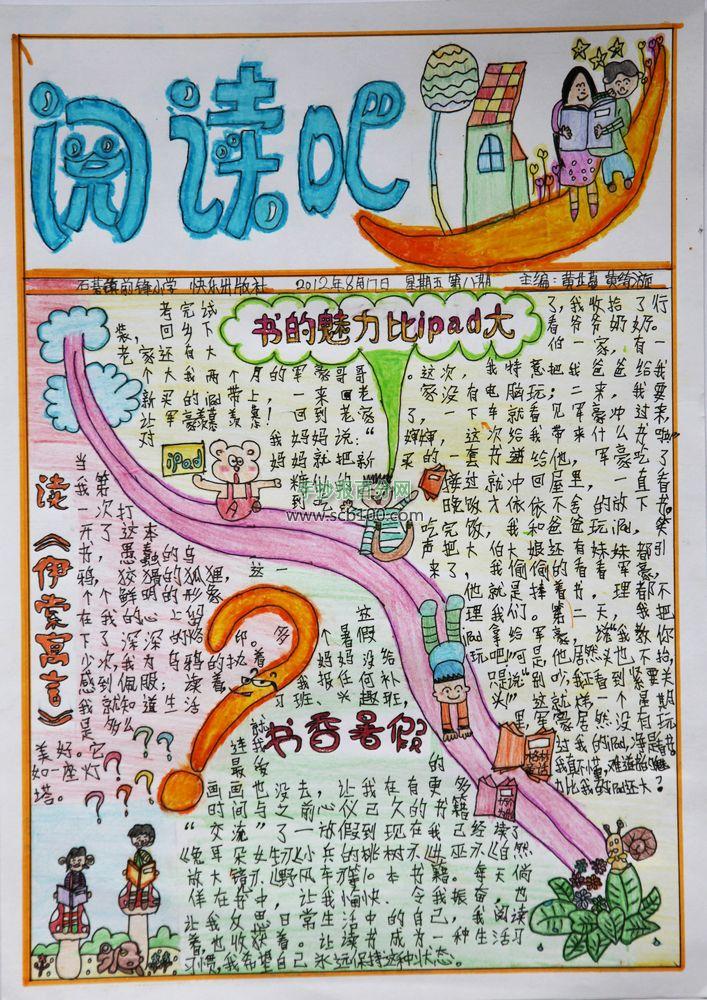 阅读吧
石碁镇前锋小学 快乐出版社 2012年8月17日 星期五 第八期 主编:黄
书的魅力比ipad大
考完试
了,我收拾了行
装,回乡下看爷爷奶奶。
老家还有大伯一家,有一
个大我两个月的军豪哥哥。这次,我特意把我爸爸给我
新买的ipad带上,一来回老家没有电脑玩;二来,我要
让军豪羡慕羡慕!回到老家了,一下车就看见军豪冲过来,
对我妈妈说:“婶婶,这次给我带来什么书啦”
妈妈就把新买的一套书递给他,军豪吃了
接过就冲回屋里,一直看
晚饭才依依不舍的放下书
吃完饭,我和爸爸玩ipad,笑
声把大伯大娘还有妹妹都引
来了,我偷偷的看看军豪,
他就是捧着书,理都不
理我们。第二天,我把
ipad拿给军豪,说“我教你
玩吧”可是他居然头也不抬,
只是说“别吵,我正看到紧要关
头”。这就样一个星期
里,军豪居然没有玩
过我的ipad,净是看书。
我真不懂,难道书的魅
力比我的ipad还大?
iPad
手抄报百分网
www.scb100.com
读《伊索寓言》
当我第
一次打
开了这本
书,愚蠢的乌
鸦,狡猾的狐狸,这一
个个鲜明的形象
在我的心上留
下了深深的烙印。多
少次,我为乌鸦的执着
感到佩服;读着
我就知道生活
是多么
美好。它
如一座灯
塔。
书香暑假
这
个暑假
妈妈没给
我报任何补
习班、兴趣班,
就
连我
最爱的
画画也没去,让我在有更多
时间与之前心仪已久的书籍
“交流”了一放假到现在我已经读了
《兔耳朵女生》《小兵的桃树》《自然
放大镜》《野风车》等10本书籍。每天徜
徉在书中,让我愉快、令我振奋,也
让我反思日常生活中的自己,我阅读
着也收获着。让读书成为一种生活习
习惯,我希望自己永远保持这种状态。